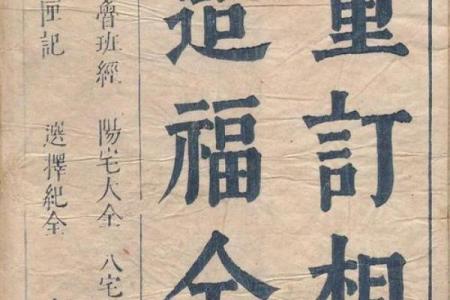 重訂相
造福全
魯班經　陽宅大全　八宅
匣記　選擇紀全